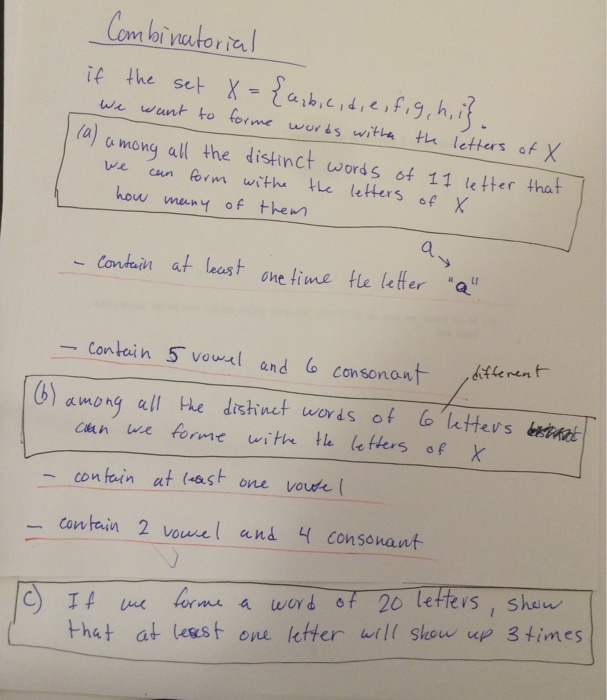 Combinatorial
if the set X = {a,b,c,d,e,f,g,h,i}.
we want to forme words withe the letters of X
(a) among all the distinct words of 11 letter that
we can form withe the letters of X
how meny of them
a
- contain at least one time the letter "a"
- contain 5 vowel and 6 consonant
different
(b) among all the distinct words of 6 letters
can we forme withe the letters of X
- contain at least one vowel
- contain 2 vowel and 4 consonant
c) If we forme a word of 20 letters, show
that at least one letter will show up 3 times